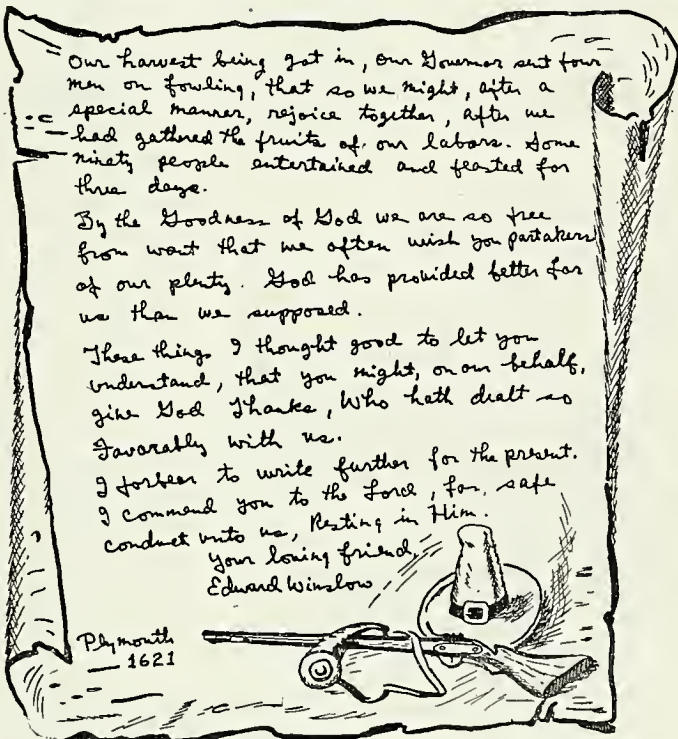 Our harvest being got in, our Governor sent four
men on fowling, that so we might, after a
special manner, rejoice together, after we
had gathered the fruits of our labors. Some
ninety people entertained and feasted for
three days.
By the Goodness of God we are so free
from want that we often wish you partakers
of our plenty. God has provided better for
us than we supposed.
These things I thought good to let you
understand, that you might, on our behalf,
give God Thanks, Who hath dealt so
Favorably with us.
I forbear to write further for the present.
I commend you to the Lord, for, safe
conduct unto us, Resting in Him.
Your loving friend,
Edward Winslow
Plymouth
— 1621